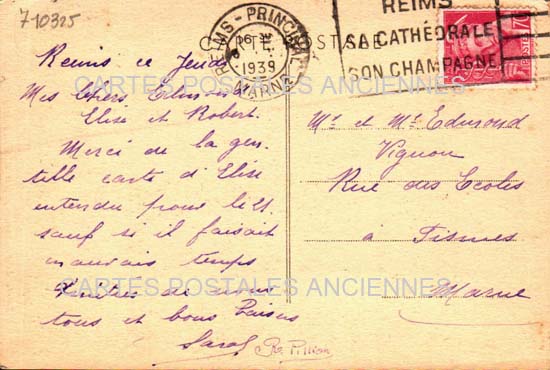 710325
CARTE POSTALE
REIMS-PRINCIPAL
1939
MARNE
REIMS
SA CATHÉDRALE
SON CHAMPAGNE
70c
POSTES
Reims ce Jeudi
CARTES POSTALES ANCIENNES
Mes chers Edmond
Elise et Robert.
Merci de la gen-
tille carte d'Elise
entendu pour le 21
sauf si il faisait
mauvais temps
CARTES POSTALES ANCIENNES
de nous
tous et bons baisers
Mr et Me Edmond
Vignon
Rue des Ecoles
à Fismes
Marne